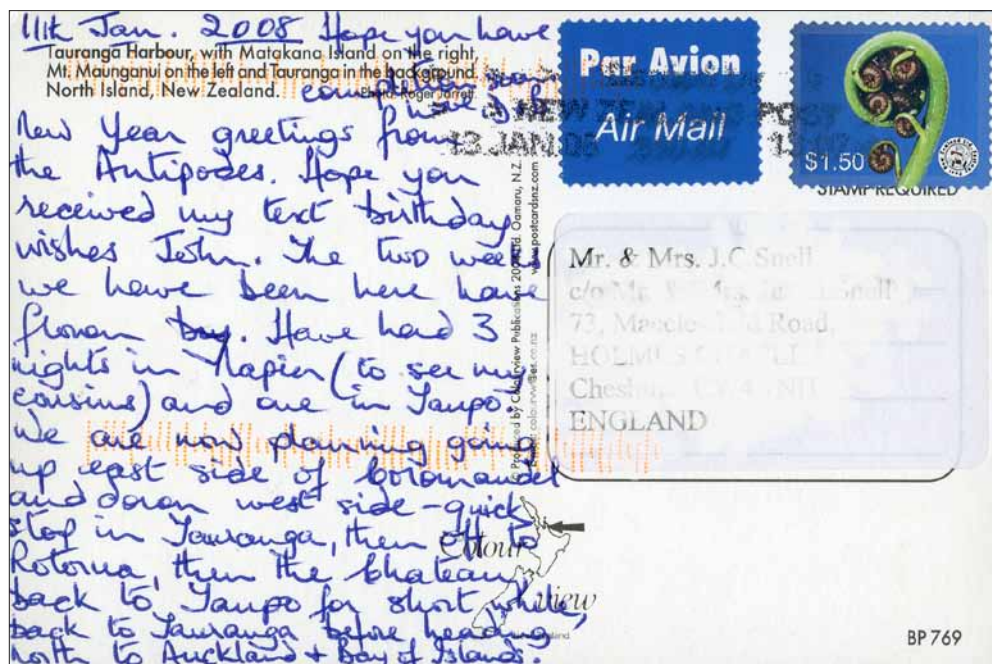 11th Jan. 2008 Hope you have
completed your
move.
Tauranga Harbour, with Matakana Island on the right,
Mt. Maunganui on the left and Tauranga in the background.
North Island, New Zealand.
Photo: Roger Jarrett
New Year greetings from
the Antipodes. Hope you
received my text birthday
wishes John. The two weeks
we have been here have
flown by. Have had 3
nights in Napier (to see my
cousins) and one in Taupo.
We are now planning going
up east side of Coromandel
and down west side - quick
stop in Tauranga, then off to
Rotorua, then the Chateau,
back to Taupo for short while,
back to Tauranga before heading
north to Auckland + Bay of Islands.
Produced by Colourview Publications Ltd, Oamaru, N.Z.
www.postcardsnz.com
Par Avion
Air Mail
NEW ZEALAND POST
13 JAN 08
$1.50
STAMP REQUIRED
Mr. & Mrs. J.C. Snell
c/o Mr. & Mrs. Snell
73, Road,
HOLMES
Cheshire
ENGLAND
Colour
View
BP 769